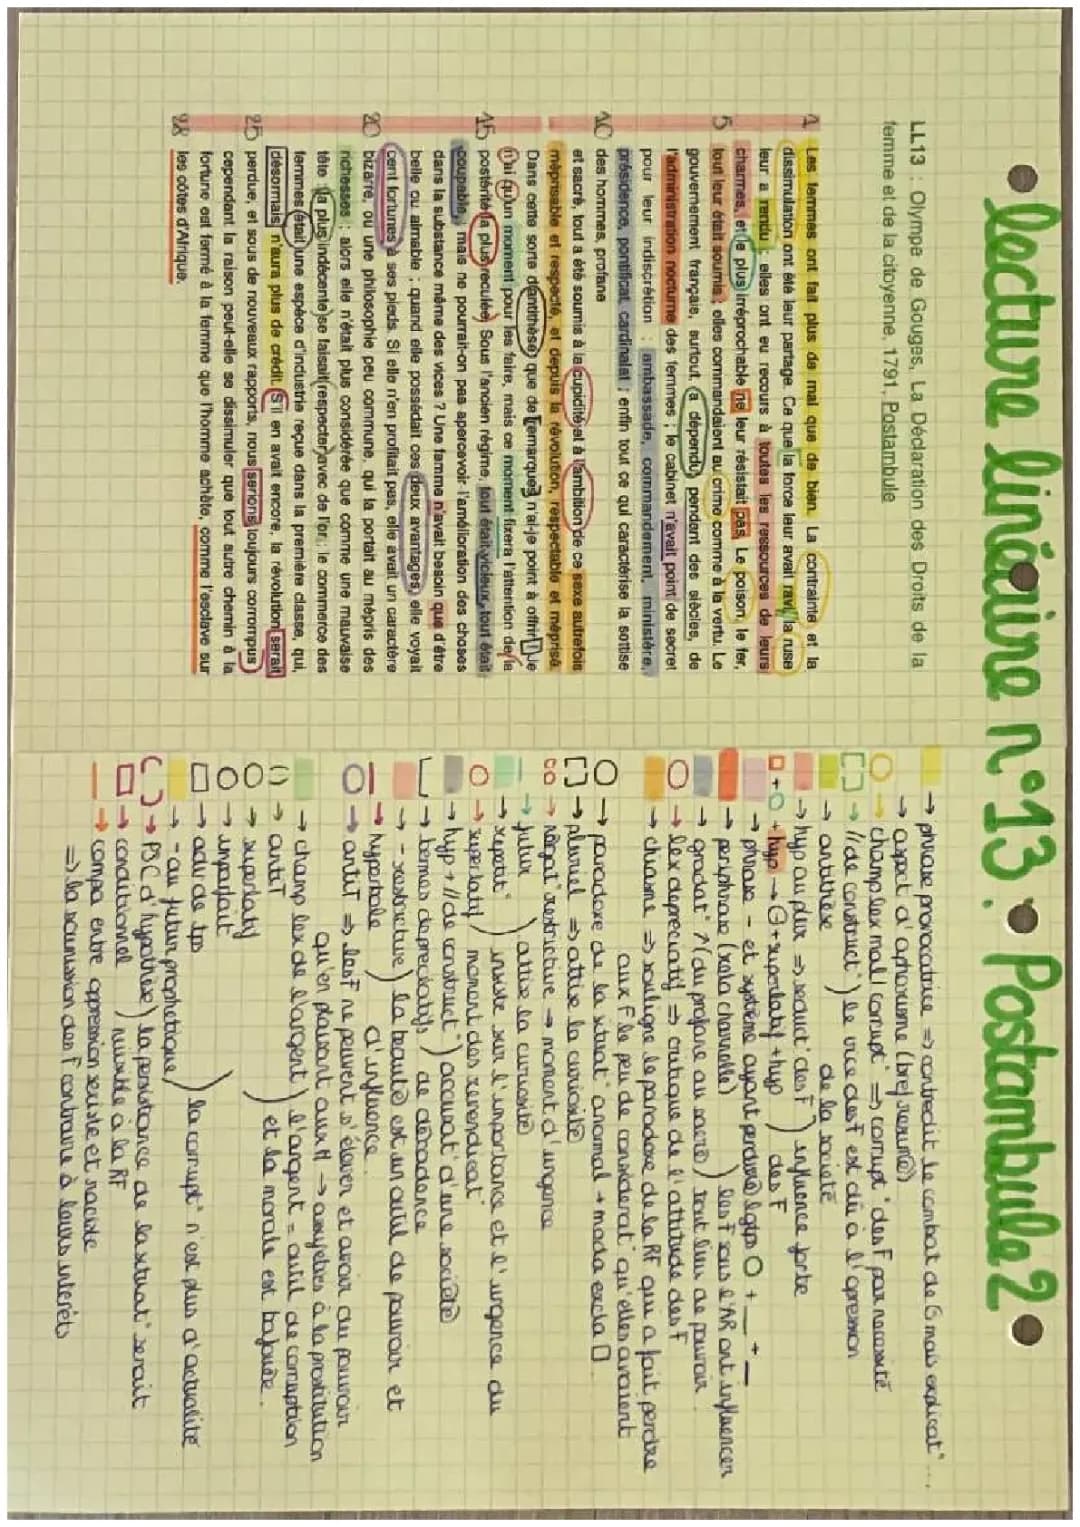 • lecture linéaire n°13 • Postambule 2 •
LL13 : Olympe de Gouges, La Déclaration des Droits de la
femme et de la citoyenne, 1791, Postambule
1 Les femmes ont fait plus de mal que de bien. La contrainte et la
dissimulation ont été leur partage. Ce que la force leur avait ravi, la ruse
leur a rendu ; elles ont eu recours à toutes les ressources de leurs
charmes, et le plus irréprochable ne leur résistait pas. Le poison, le fer,
5 tout leur était soumis ; elles commandaient au crime comme à la vertu. Le
gouvernement français, surtout, a dépendu, pendant des siècles, de
l'administration nocturne des femmes ; le cabinet n'avait point de secret
pour leur indiscrétion : ambassade, commandement, ministère,
présidence, pontificat, cardinalat ; enfin tout ce qui caractérise la sottise
10 des hommes, profane
et sacré, tout a été soumis à la cupidité et à l'ambition de ce sexe autrefois
méprisable et respecté, et depuis la révolution, respectable et méprisé.
Dans cette sorte d'antithèse, que de remarques n'ai-je point à offrir ! Je
n'ai qu'un moment pour les faire, mais ce moment fixera l'attention de la
15 postérité la plus reculée. Sous l'ancien régime, tout était vicieux, tout était
coupable ; mais ne pourrait-on pas apercevoir l'amélioration des choses
dans la substance même des vices ? Une femme n'avait besoin que d'être
belle ou aimable ; quand elle possédait ces deux avantages, elle voyait
cent fortunes à ses pieds. Si elle n'en profitait pas, elle avait un caractère
20 bizarre, ou une philosophie peu commune, qui la portait au mépris des
richesses ; alors elle n'était plus considérée que comme une mauvaise
tête ; la plus indécente se faisait respecter avec de l'or ; le commerce des
femmes était une espèce d'industrie reçue dans la première classe, qui,
désormais, n'aura plus de crédit. S'il en avait encore, la révolution serait
25 perdue, et sous de nouveaux rapports, nous serions toujours corrompus ;
cependant la raison peut-elle se dissimuler que tout autre chemin à la
fortune est fermé à la femme que l'homme achète, comme l'esclave sur
28 les côtes d'Afrique.
→ phrase provocatrice ⇒ contredit le combat de G mais explicat° ...
→ aspect d'aphorisme (bref, résumé)
→ champ lex mal / corrupt° ⇒ corrupt° des F par nécessité
→ // de construct° ) le vice des F est dû à l'opression
→ antithèse ) de la société
→ hyp au plur ⇒ séduct° des F ) influence forte
+ + hyp → G + superlatif + hyp ) des F
→ phrase - et système ayant perduré lgtps O + _ + _
→ périphrase (relα charnelle) ) les F sous l'AR ont influencer
→ gradat° ↗ (du profane au sacré) ) tout lieu de pouvoir
→ lex dépréciatif ⇒ critique de l'attitude des F
→ chiasme ⇒ souligne le paradoxe de la RF qui a fait perdre
aux F le peu de considérat° qu'elles avaient
→ paradoxe de la situat° anormal + moda excla
→ pluriel ⇒ attise la curiosité
→ négat° restrictive → moment d'urgence
→ futur ) attise la curiosité
→ répétit° ) insiste sur l'importance et l'urgence du
→ superlatif ) moment des revendicat°
→ hyp + // de construct° ) accusat° d'une société
→ termes dépréciatifs ) de décadence
→ - restrictive ) la beauté est un outil de pouvoir et
→ hyperbole ) d'influence.
→ antiT ⇒ les F ne peuvent s'élever et avoir du pouvoir
qu'en plaisant aux H → assujetties à la prostitution
→ champ lex de l'argent ) l'argent = outil de corruption
→ antiT ) et la morale est bafouée.
→ superlatif
→ imparfait
→ adv de tps ) la corrupt° n'est plus d'actualité
→ - au futur prophétique )
→ PSC d'hypothèse ) la persistance de la situat° serait
→ conditionnel ) nuisible à la RF
→ compa entre oppression sexiste et raciste
⇒ la soumission des F contraire à leurs intérêts